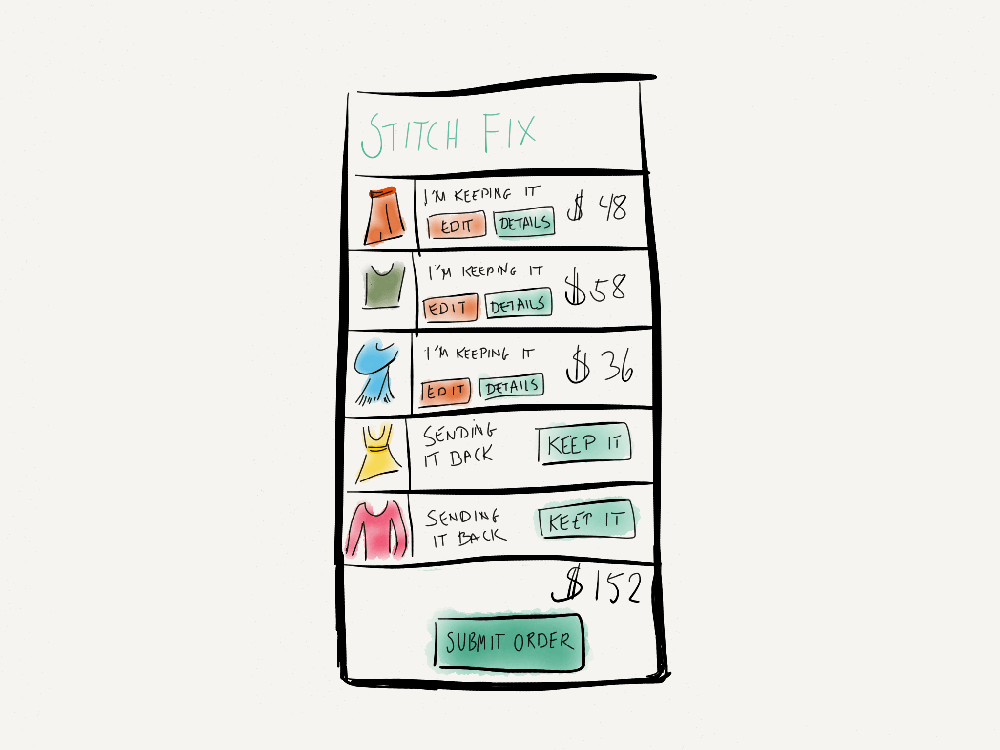 STITCH FIX
I'M KEEPING IT
EDIT DETAILS $ 48
I'M KEEPING IT
EDIT DETAILS $58
I'M KEEPING IT
EDIT DETAILS $ 36
SENDING
IT BACK
KEEP IT
SENDING
IT BACK
KEEP IT
$152
SUBMIT ORDER